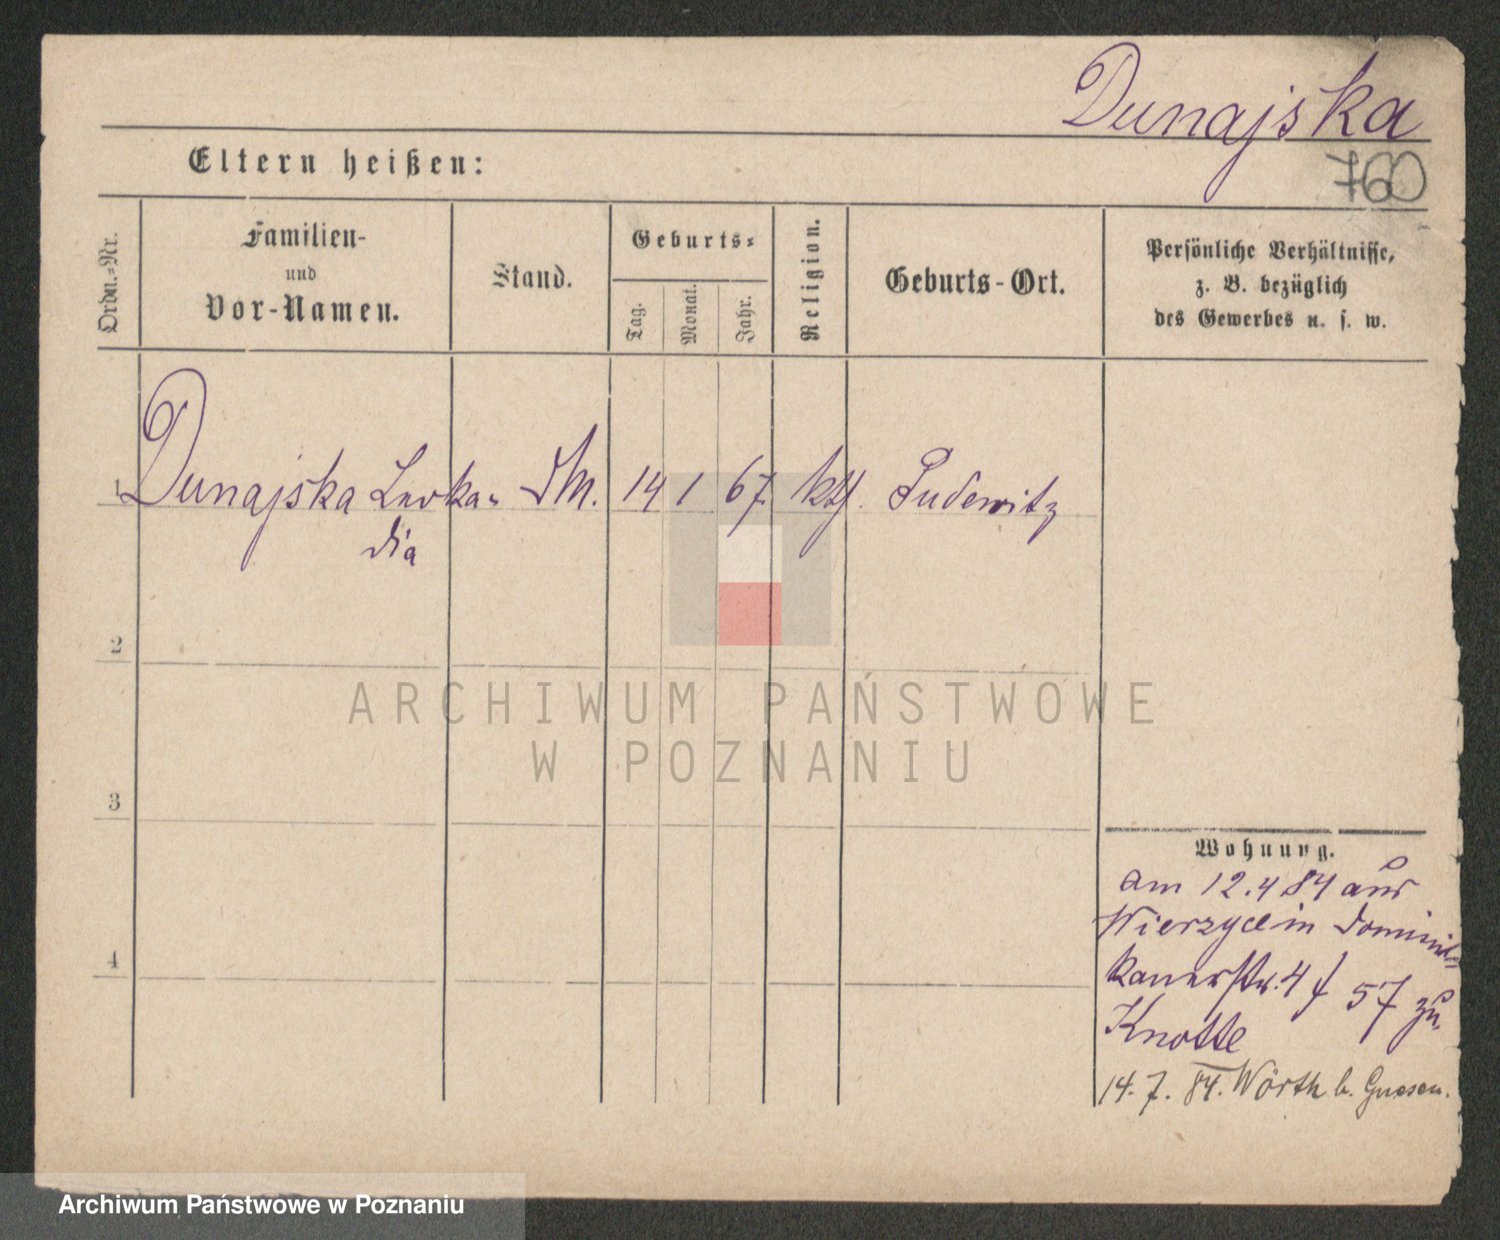 Dunajska
760
Eltern heißen:
Ordn.-Nr.
Familien-
und
Vor-Namen.
Stand.
Geburts-
Tag.
Monat.
Jahr.
Religion.
Geburts-Ort.
Persönliche Verhältnisse,
z. B. bezüglich
des Gewerbes u. s. w.
1 Dunajska Leoka- 14 1 67 kth. Pudewitz
dia
2
3
4
Wohnung.
am 12.4 84 aus
Wierzyce in Domini-
kanerstr. 4 57 zu
Knotte
14. 7. 84. Wörth b. Gnesen.
ARCHIWUM PAŃSTWOWE
W POZNANIU
Archiwum Państwowe w Poznaniu